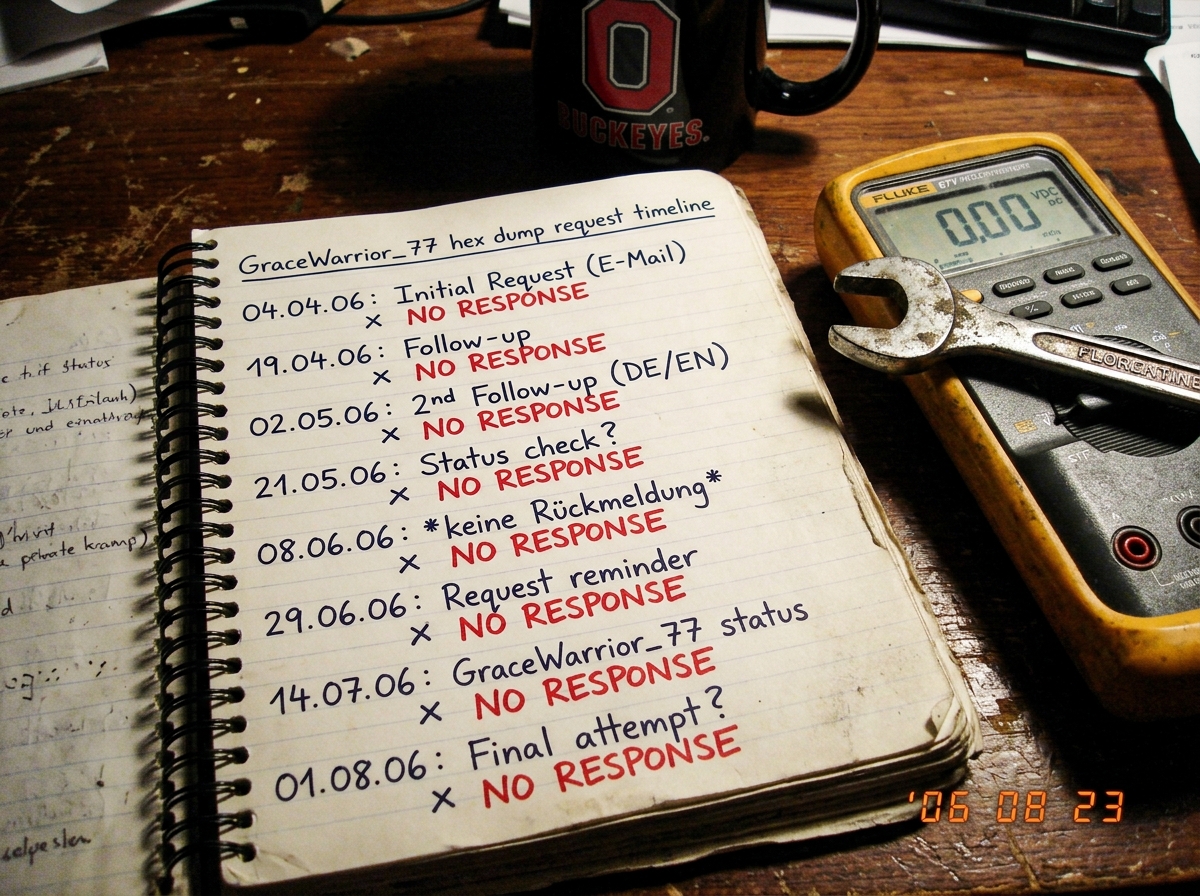 BUCKEYES
GraceWarrior_77 hex dump request timeline
04.04.06: Initial Request (E-Mail)
× NO RESPONSE
19.04.06: Follow-up
× NO RESPONSE
02.05.06: 2nd Follow-up (DE/EN)
× NO RESPONSE
21.05.06: Status check?
× NO RESPONSE
08.06.06: *keine Rückmeldung*
× NO RESPONSE
29.06.06: Request reminder
× NO RESPONSE
14.07.06: GraceWarrior_77 status
× NO RESPONSE
01.08.06: Final attempt?
× NO RESPONSE
FLUKE
0,00 VDC
DC
FLORENTINE
'06 08 23